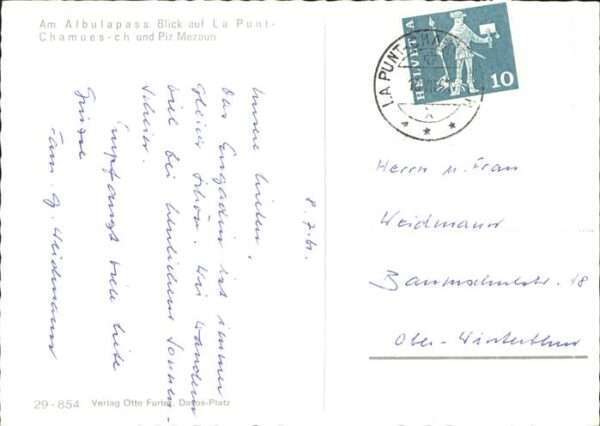 Am Albulapass Blick auf La Punt-
Chamues-ch und Piz Mezaun
8.7.61.
Unsere Lieben,
Das Engadin ist immer
gleich schön. Wir wandern
viel bei herrlichem Sonnen-
schein.
Empfangt viele liebe
Grüsse
Fam. G. Weidmann
HELVETIA
10
LA PUNT-CHA
Herrn u. Frau
Weidmann
Baumschulstr. 18
Ober-Winterthur
29-854 Verlag Otto Furter, Davos-Platz